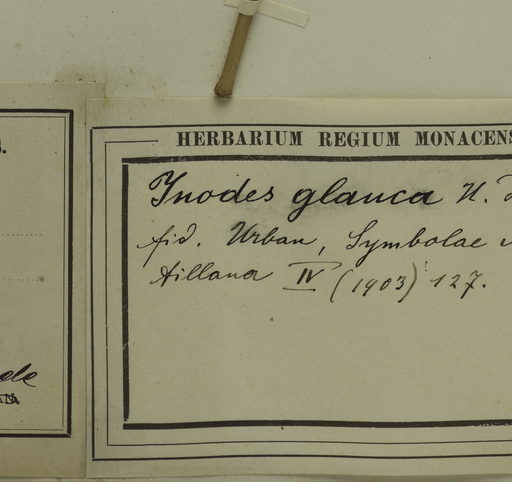 HERBARIUM REGIUM MONACENS
Inodes glauca H.
fid. Urban, Symbolae
tillana IV (1903) 127.